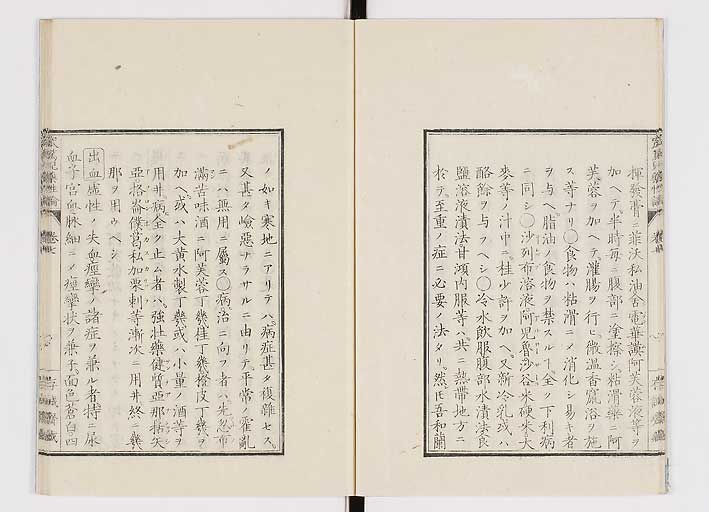 揮發膏ニ菲沃私油舎電華謨阿芙蓉液等ヲ
加ヘテ半時毎ニ腹部ニ塗擦シ粘滑藥ニ阿
芙蓉ヲ加ヘテ灌腸ヲ行ヒ微溫香竄浴ヲ施
ス等ナリ○食物ハ粘滑ニメ消化シ易キ者
ヲ与ヘ脂油ノ食物ヲ禁スルヿ全ク下利病
ニ同シ○沙列布溶液阿児魯沙谷米硬米大
麥等ノ汁中ニ桂少許ヲ加ヘ又漸冷乳或ハ
酪餘ヲ与フヘシ○冷水飲服腹部水漬法食
鹽溶液漬法甘汞内服等ハ共ニ熱帶地方ニ
於テ至重ノ症ニ必要ノ法タリ然圧吾和蘭
ノ如キ寒地ニアリテハ病症甚タ複雜セス
又甚タ嶮惡ナラサルニ由リテ平常ノ霍亂
ニハ無用ニ屬ス○病治ニ向フ者ハ先忽布
滿苦味酒ニ阿芙蓉丁幾桂丁幾橙皮丁幾ヲ
加ヘ或ハ大黄水製丁幾或ハ小量ノ酒等ヲ
用井病全ク止ム者ハ強壯藥健質亜那括矢
亞格崙僕萵私加栗剌等漸次ニ用井終ニ幾
那ヲ用ウヘシ
出血虚性ノ失血痙攣ノ諸症ヲ兼ル者持ニ尿
血子宮血脉細ニメ痙攣状ヲ兼子面色蒼白四